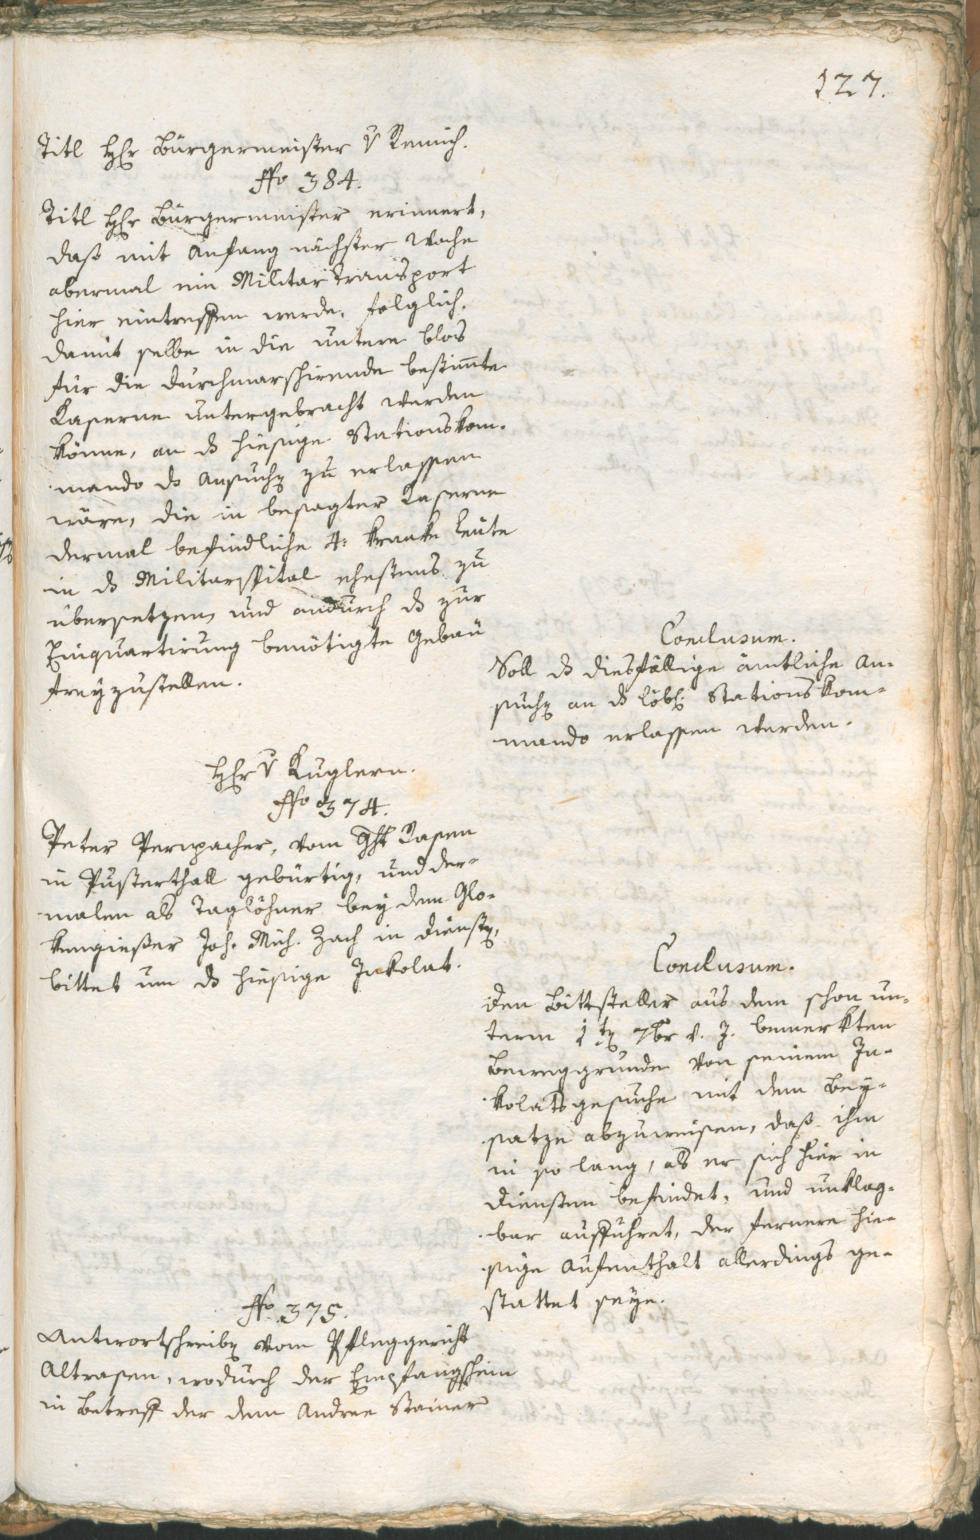 127.
Titl H̃r Bürgermeister v Remich.
No 384.
Titl H̃r Bürgermeister erinnert,
daß mit Anfang nächster Woche
abermal ein Militar Transport
hier eintreffen werde, folglich,
damit selbe in die untere blos
für die durchmarschirende bestim̄te
Kaserne untergebracht werden
könne, an ds hiesige Stationskom-
mando ds Ansuchen zu erlassen
wäre, die in besagter Kaserne
dermal befindliche 4: kranke Leute
in ds Militarspital ehestens zu
übersetzen, und andurch ds zur
Einquartirung benötigte Gebäu
freyzustellen.
Conclusum.
Soll ds diesfällige ämtliche An-
suchen an ds löbl: Stationskom-
mando erlassen werden.
H̃r v Kuglern.
No 374.
Peter Perpacher, vom Ght Rasen
in Pusterthall gebürtig, und der-
malen als Taglöhner bey dem Glo-
kengießer Joh. Mich. Zach in Diensten,
bittet um ds hiesige Inkolat.
Conclusum.
Den Bittsteller aus dem schon un-
term 1ten 7br v. J. bemerkten
Beweggrunde von seinem In-
kolatsgesuche mit dem Bey-
satze abzuweisen, daß ihm
in so lang, als er sich hier in
Diensten befindet, und unklag-
bar aufführet, der fernere hie-
sige Aufenthalt allerdings ge-
stattet seye.
No 375.
Antwortschreiben vom Pfleggericht
Altrasen, wodurch der Empfangschein
in Betreff der dem Andree Stainer